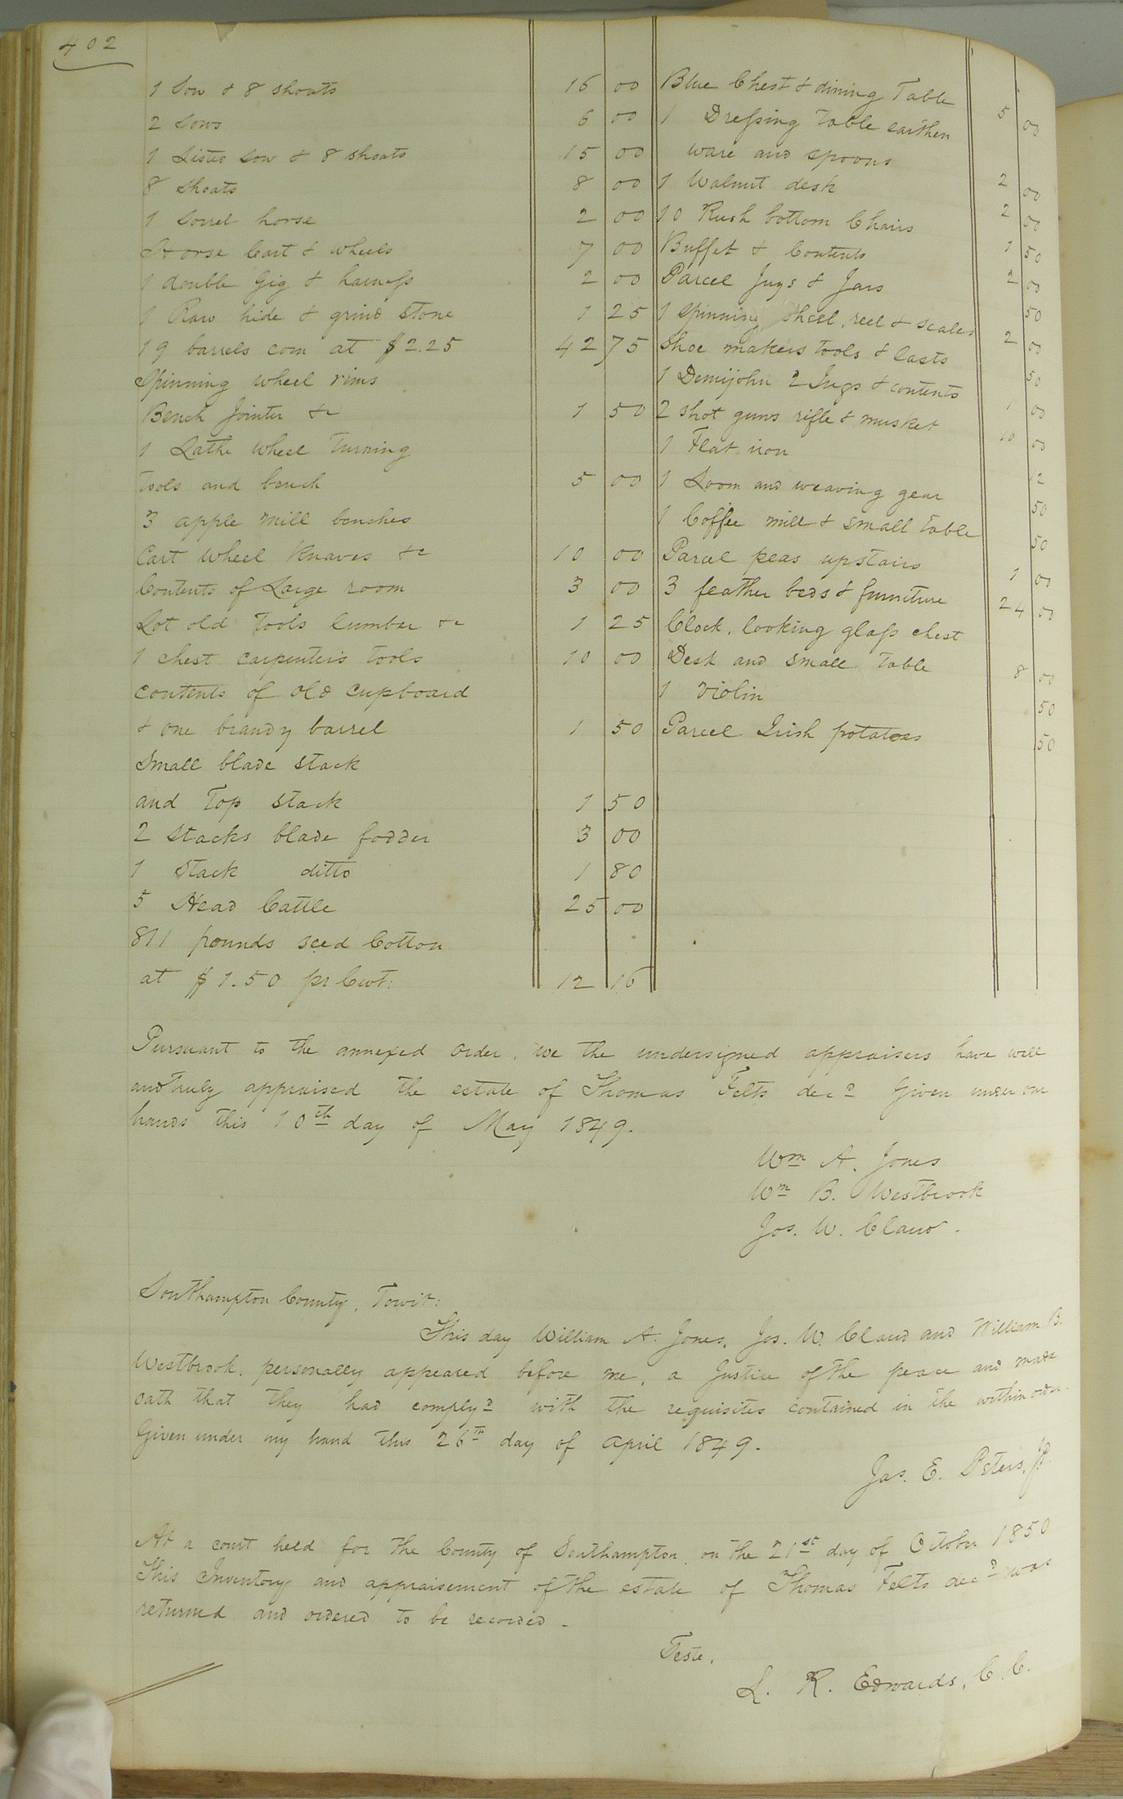 402
1 Sow & 8 shoats 16 00
2 Sows 6 00
1 Listed Sow & 8 shoats 15 00
8 Shoats 8 00
1 Sorrel horse 2 00
Horse Cart & wheels 7 00
1 double Gig & harness 2 00
1 Raw hide & grind stone 1 25
19 barrels corn at $2.25 42 75
Spinning wheel rims
Bench Jointer &c 1 50
1 Lathe wheel Turning
Tools and bench 5 00
3 apple mill benches
Cart wheel Knaves &c 10 00
Contents of Large room 3 00
Lot old Tools lumber &c 1 25
1 chest carpenter's tools 10 00
contents of old cupboard
& one brandy barrel 1 50
Small blade stack
and Top stack 1 50
2 stacks blade fodder 3 00
1 Stack ditto 1 80
5 Head Cattle 25 00
811 pounds seed Cotton
at $1.50 pr Cwt: 12 16
Blue Chest & dining Table 5 00
1 Dressing Table earthen
ware and spoons 2 00
1 Walnut desk 2 00
10 Rush bottom Chairs 1 50
Buffet & Contents 2 00
Parcel Jugs & Jars 50
1 Spinning wheel, reel & scales 2 00
Shoe makers tools & lasts 50
1 Demijohn 2 Jugs & contents 1 00
2 shot guns rifle & musket 10 00
1 Flat iron 12
1 Loom and weaving gear 50
1 Coffee mill & small table 50
Parcel peas upstairs 1 00
3 feather beds & furniture 24 00
Clock, looking glass chest
Desk and small table 8 00
1 Violin 50
Parcel Irish potatoes 50
Pursuant to the annexed order, we the undersigned appraisers have well
and truly appraised the estate of Thomas Felts decd Given under our
hands this 10th day of May 1849.
Wm A. Jones
Wm B. Westbrook
Jos. W. Claud.
Southampton County, Towit:
This day William A. Jones, Jos. W. Claud and William B.
Westbrook, personally appeared before me, a Justice of the peace and made
oath that they had complyd with the requisites contained in the within order.
Given under my hand this 26th day of April 1849.
Jas. E. Peters, JP.
At a court held for the County of Southampton, on the 21st day of October 1850
This Inventory and appraisement of the estate of Thomas Felts decd was
returned and ordered to be recorded.
Teste,
L. R. Edwards, C.C.